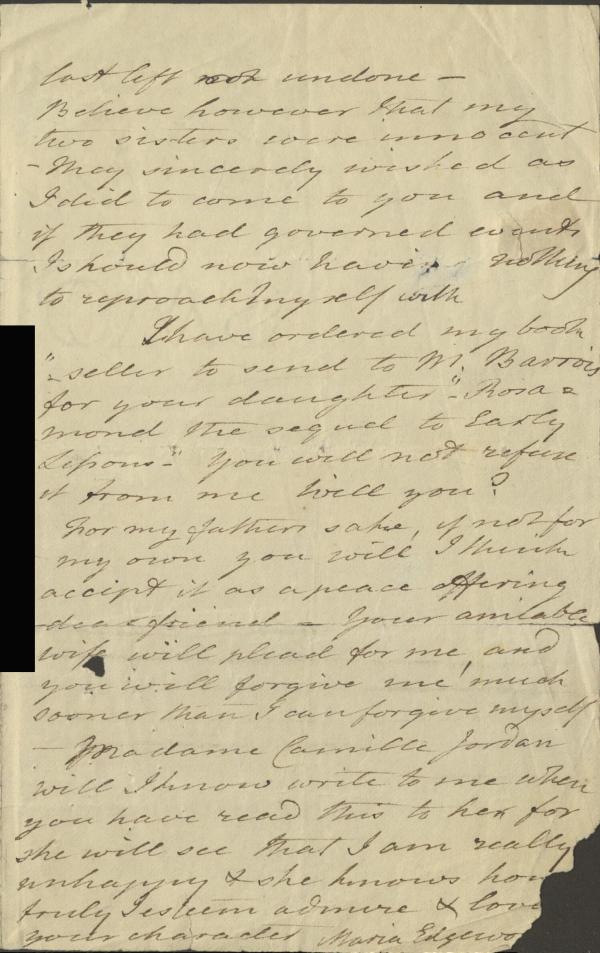 last left not undone —
Believe however that my
two sisters were innocent
– They sincerely wished as
I did to come to you and
if they had governed events
I should now have nothing
to reproach myself with
I have ordered my book
"-seller to send to M. Barrois
for your daughter "Rosa=
mond the sequel to Early
Lessons-" You will not refuse
it from me Will you?
For my fathers sake, if not for
my own you will I think
accept it as a peace offering
dear friend – Your amiable
wife will plead for me, and
you will forgive me much
sooner than I can forgive myself
– Madame Camille Jordan
will I know write to me when
you have read this to her for
she will see that I am really
unhappy & she knows how
truly I esteem admire & love
your character Maria Edgewo